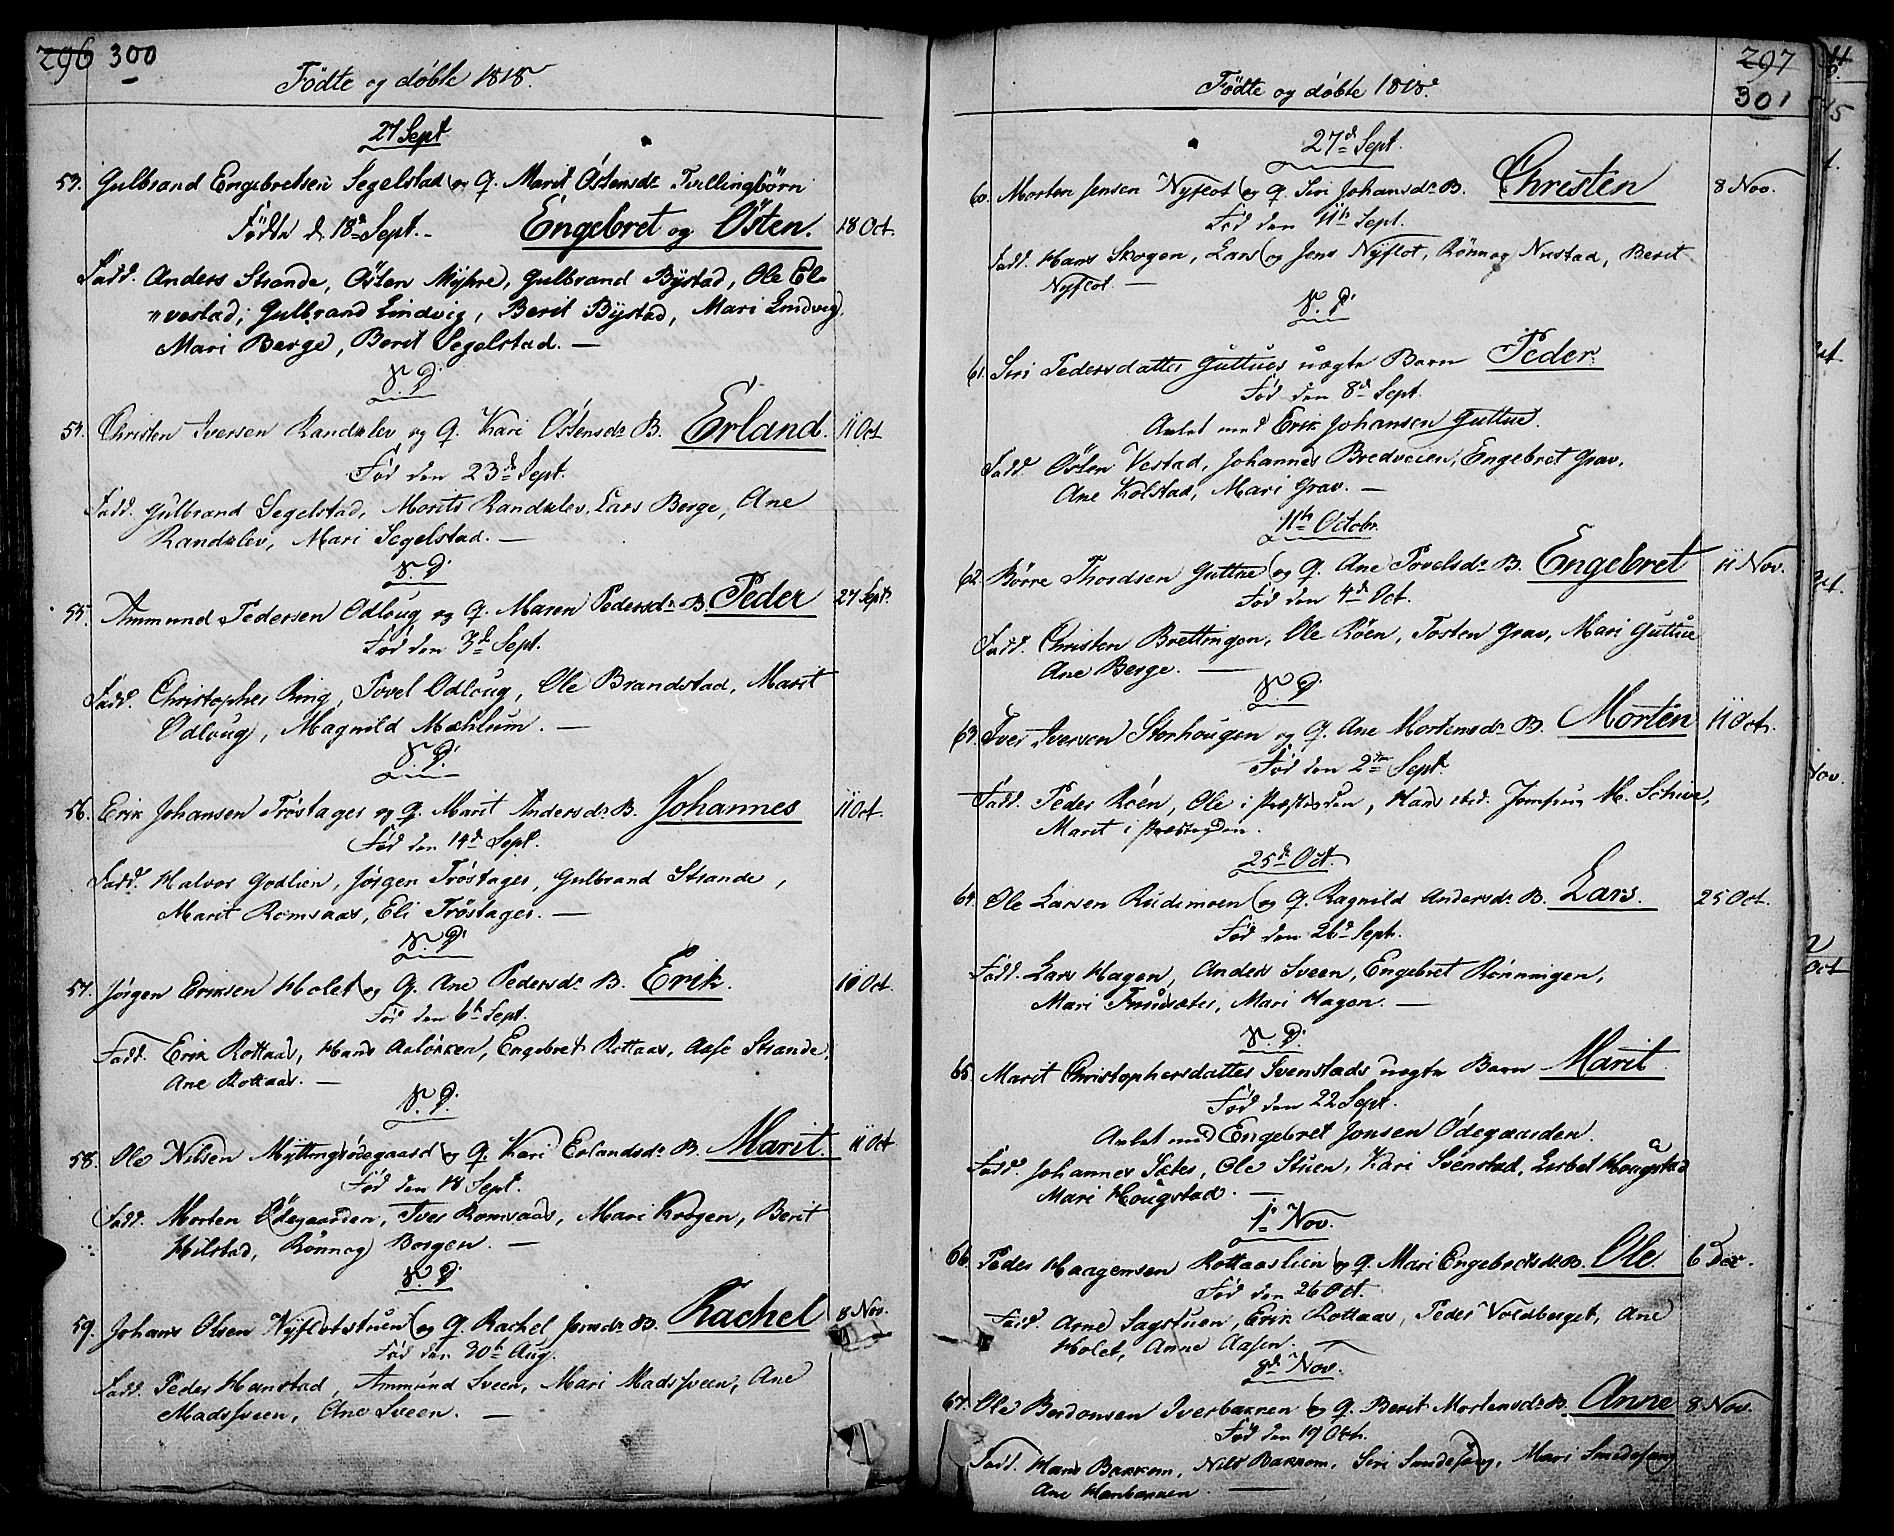 296 300
Födte og döbte 1818.
27 Sept
53. Gulbrand Engebretsen Segelstad og Q. Marit Östensdr. Tvillingbörn
Födte d. 18de Sept. Engebret og Östen. 18 Oct.
Fadd. Anders Strande, Östen Myhre, Gulbrand Bÿstad, Ole El-
"vestad; Gulbrand Lindvig, Berit Bÿstad, Mari Lindvig,
Mari Berge, Berit Segelstad. —
S. D.
54. Christen Iversen Randklev og Q. Kari Östensdr. B. Erland. 11 Oct
Föd den 23de Sept.
Fadd. Gulbrand Segelstad, Morits Randklev, Lars Berge, Ane
Randklev, Mari Segelstad. —
S. D.
55. Ammund Pedersen Odloug og Q. Maren Pedersdr. B. Peder 27 Sept.
Föd den 3de Sept.
Fadd. Christopher Ring, Povel Odloug, Ole Brandstad, Marit
Odloug, Magnild Mæhlum. —
S. D.
56. Erik Johansen Tröstager og Q. Marit Andersdr. B. Johannes 11 Oct.
Föd den 14de Sept.
Fadd. Halvor Godlien, Jörgen Tröstager, Gulbrand Strande,
Marit Romsaas, Eli Tröstager. —
S. D.
57. Jörgen Eriksen Holet og Q. Ane Pedersdr. B. Erik. 10 Oct.
Föd den 6te Sept.
Fadd. Erik Rottaas, Hans Aalökken, Engebret Rottaas, Aase Strande,
Ane Rottaas. —
S. D.
58. Ole Nilsen Myttingsödegaard og Q. Kari Erlandsdr. B. Marit. 11 Oct
Föd den 18 Sept.
Fadd. Morten Ödegaarden, Iver Romsaas, Mari Krogen, Berit
Hilstad, Rönnog Borgen. —
S. D.
59. Johans Olsen Nÿflotstuen og Q. Rachel Jensdr. B. Rachel 8 Nov.
Föd den 30te Aug.
Fadd. Peder Hanstad, Ammund Sveen, Mari Madssveen, Ane
Madssveen, Ane Sveen. —
297
301
Födte og döbte 1818.
27de Sept.
60. Morten Jensen Nÿflot og Q. Siri Johansdr. B. Christen 8 Nov.
Föd den 11te Sept.
Fadd. Hans Skogen, Lars og Jens Nÿflot, Rönnog Nustad, Berit
Nÿflot. —
S. D.
61. Siri Pedersdatter Guttues uægte Barn Peder.
Föd den 8de Sept.
Avlet med Erik Johansen Guttue.
Fadd. Östen Vestad, Johannes Bredveien, Engebret Grav,
Ane Kolstad, Mari Grav. —
11te Octobr.
62. Börre Thordsen Guttue og Q. Ane Povelsdr. B. Engebret 11 Nov.
Föd den 4de Oct.
Fadd. Christen Brettingen, Ole Röen, Tosten Grav, Mari Guttue
Ane Berge. —
S. D.
63. Iver Iversen Storhougen og Q. Ane Mortensdr. B. Morten 11 Oct.
Föd den 2den Sept.
Fadd. Peder Röen, Ole i Præstegden, Hans ibid. Jomfrue M. Schive,
Marit i Præstegden.
25de Oct.
64. Ole Larsen Rudimoen og Q. Ragnild Andersdr. B. Lars. 25 Oct.
Föd den 26de Sept.
Fadd. Lars Hagen, Anders Sveen, Engebret Rönningen,
Mari Hagen. —
S. D.
65. Marit Christophersdatter Svenstads uægte Barn Marit
Föd den 22 Sept.
Avlet med Engebret Jonsen Ödegaarden.
Fadd. Johannes Sæter, Ole Stuen, Kari Svenstad, Lisbet Hougstad
Mari Hougstad. —
1ste Nov.
66. Peder Haagensen Rottaaslien og Q. Mari Engebretsdr. B. Ole 6 Dec.
Föd den 26 Oct.
Fadd. Arne Sagstuen, Erik Rottaas, Peder Voldberget, Ane
Holet, Anne Aasen. —
8de Nov.
67. Ole Berdonsen Iverbakken og Q. Berit Mortensdr. B. Anne 8 Nov.
Föd den 19 Oct.
Fadd. Hans Bakkom, Nils Bakkom, Siri Smedsgaarden, Mari
Ane Hanbakken —